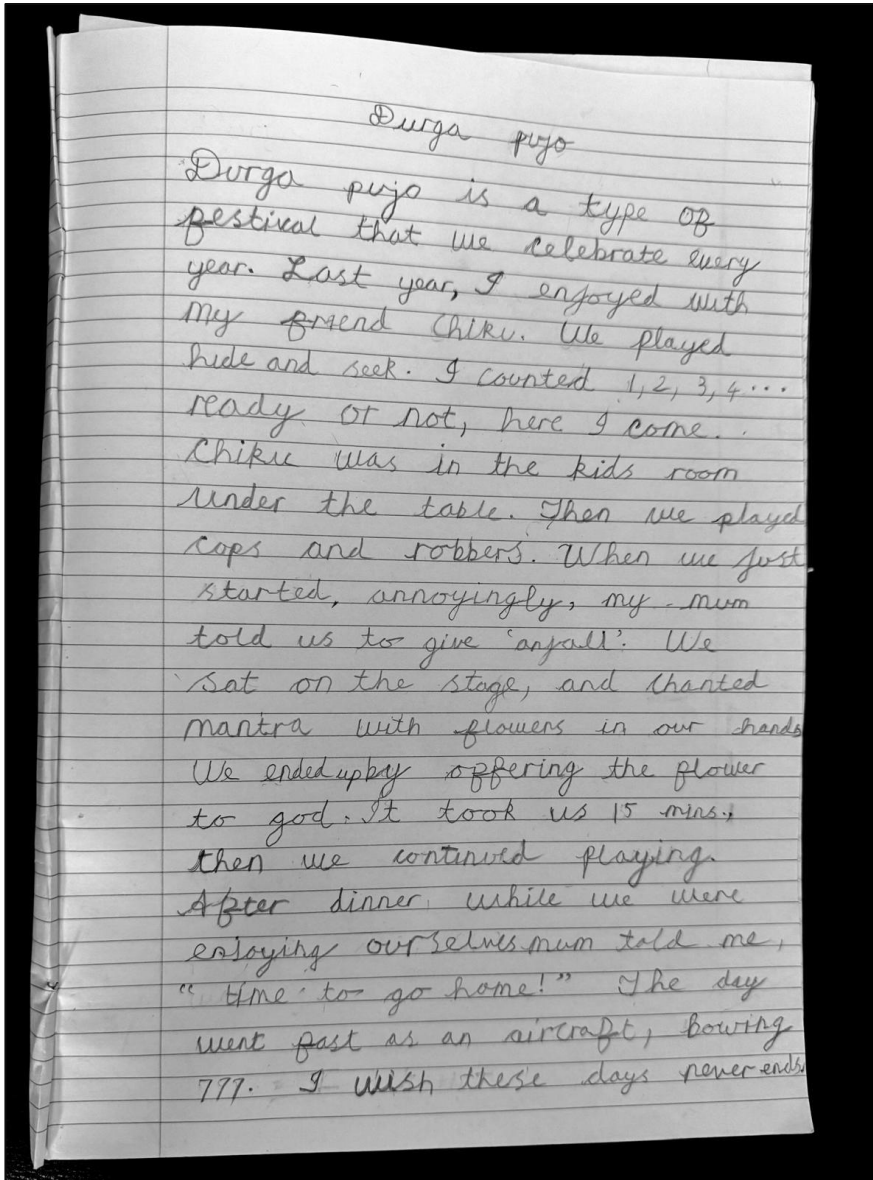 Durga pujo
Durga pujo is a type of
festival that we celebrate every
year. Last year, I enjoyed with
my friend Chiku. We played
hide and seek. I counted 1, 2, 3, 4 ...
ready or not, here I come..
Chiku was in the kids room
under the table. Then we played
cops and robbers. When we just
started, annoyingly, my mum
told us to give 'anjali'. We
sat on the stage, and chanted
mantra with flowers in our hands
We ended up by offering the flower
to god. It took us 15 mins.,
then we continued playing.
After dinner, while we were
enjoying ourselves mum told me,
" time to go home!" The day
went fast as an aircraft, Bowing
777. I wish these days never ends.